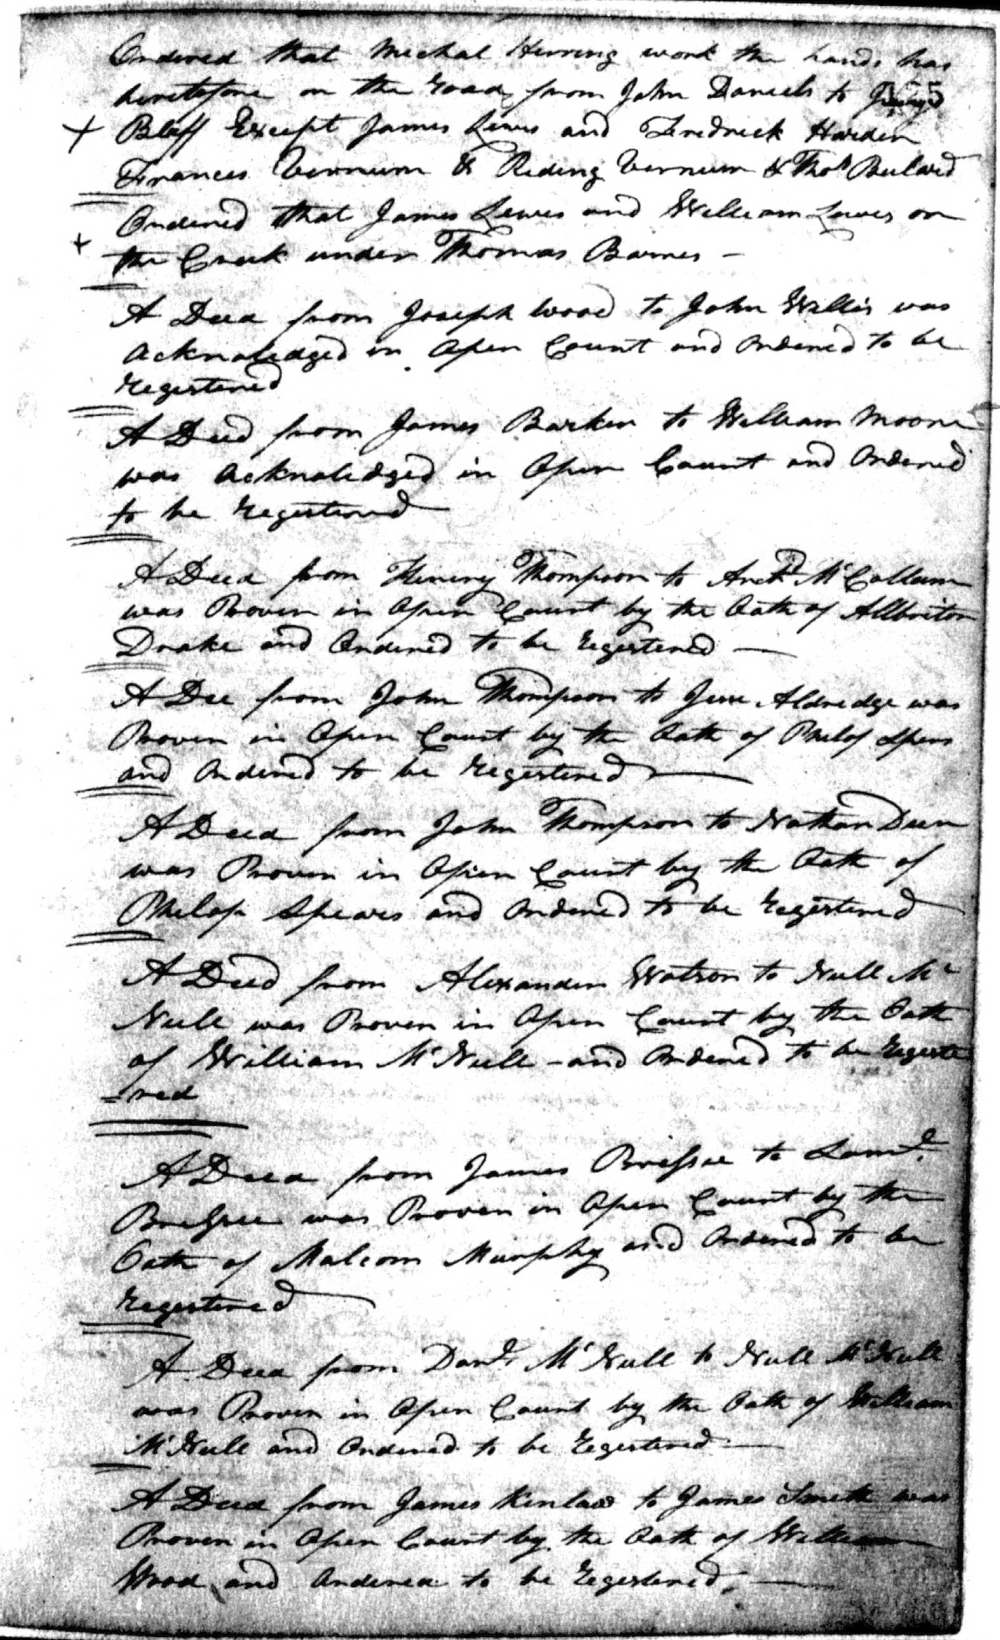 Ordered that Mechal Herring work the hands has
heretofore on the road from John Daniels to
125
+ Bluff Except James Lewis and Fredrick Harden
Frances Vernum & Riding Vernum & Thos Bulard
Ordered that James Lewis and William Lewis on
+ the Creek under Thomas Barnes —
A Deed from Joseph Wood to John Willis was
Acknoledged in Open Court and Ordered to be
Regestered
A Deed from James Barker to William Moore
was Acknoledged in Open Court and Ordered
to be Regestered
A Deed from Henery Thompson to Archd McCollum
was Proven in Open Court by the Oath of Allbriton
Drake and Ordered to be Regestered —
A Dee from John Thompson to Aldredge was
Proven in Open Court by the Oath of Philop Spers
and Ordered to be Regestered —
A Deed from John Thompson to Nathan Deen
was Proven in Open Court by the Oath of
Philop Speares and Ordered to be Regestered
A Deed from Alexander Watson to Neill Mc
Neill was Proven in Open Court by the Oath
of William McNeill - and Ordered to be Regeste
=red
A Deed from James to Saml
was Proven in Open Court by the
Oath of Malcom Murphy and Ordered to be
Regestered
A Deed from Danl McNeill to Neill McNeill
was Proven in Open Court by the Oath of William
McNeill and Ordered to be Regestered —
A Deed from James Kinlaw to James Smith was
Proven in Open Court by the Oath of William
Wood and Ordered to be Regestered. —